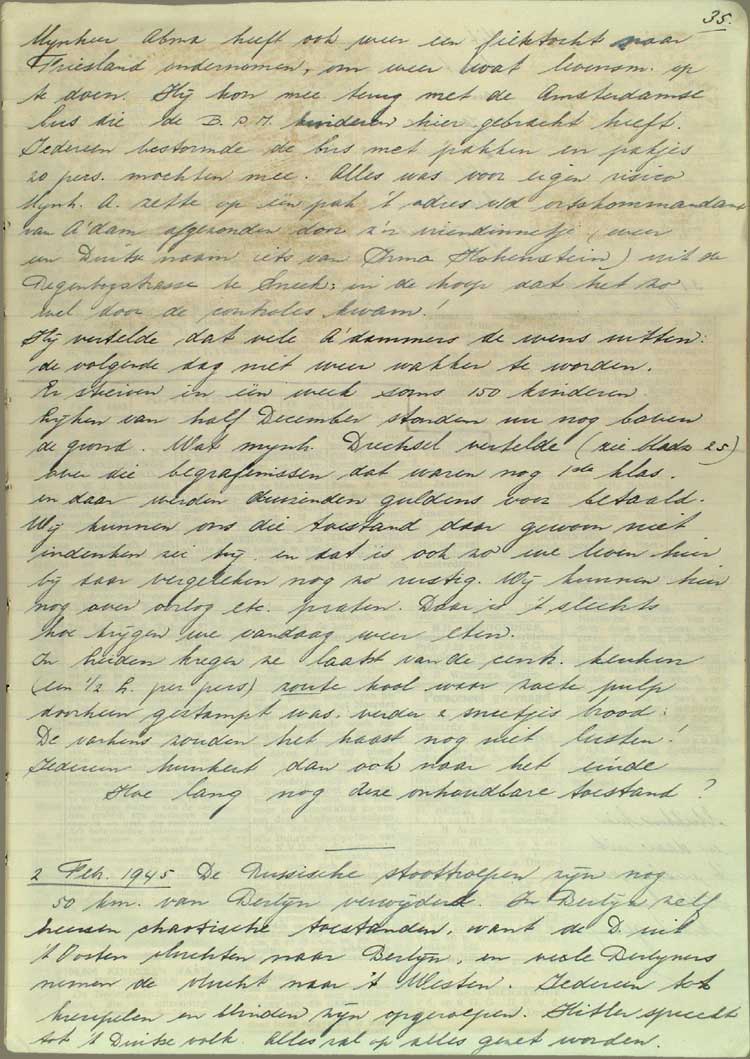 35.
Mynheer Abma heeft ook weer een fietstocht naar
Friesland ondernomen, om weer wat levensm. op
te doen. Hij kon mee terug met de Amsterdamse
bus die de B.P.M. kinderen hier gebracht heeft.
Iedereen bestormde de bus met pakken en pakjes
20 pers. mochten mee. Alles was voor eigen risico
Mynh. A. zette op één pak 't adres v/d ortskommandant
van A'dam afgezonden door z'n vriendinnetje (weer
een Duitse naam iets van Irma Hohenstein) uit de
Regenbogstrasse te Sneek; in de hoop dat het zo
wel door de controles kwam!
Hij vertelde dat vele A'dammers de wens uitten:
de volgende dag niet weer wakker te worden.
Er stierven in één week soms 150 kinderen
Lijken van half December stonden nu nog boven
de grond. Wat mynh. Drechsel vertelde (zie bladz 25)
over die begrafenissen dat waren nog 1ste klas.
en daar werden duizenden guldens voor betaald.
Wij kunnen ons die toestand daar gewoon niet
indenken zei hij. en dat is ook zo we leven hier
bij daar vergeleken nog zo rustig. Wij kunnen hier
nog over oorlog etc. praten. Daar is 't slechts
hoe krijgen we vandaag weer eten.
In Leiden kregen ze laatst van de centr. keuken
(een 1/2 L. per pers) zoute kool waar zoete pulp
doorheen gestampt was. verder 2 sneetjes brood:
De varkens zouden het haast nog niet lusten!
Iedereen hunkert dan ook naar het einde
Hoe lang nog deze onhoudbare toestand?
2 Feb. 1945 De Russische stoottroepen zijn nog
50 km. van Berlijn verwijderd. In Berlijn zelf
heersen chaotische toestanden, want de D. uit
't Oosten vluchten naar Berlijn, en vele Berlijners
nemen de vlucht naar 't Westen. Iedereen tot
kreupelen en blinden zijn opgeroepen. Hitler spreekt
tot 't Duitse volk. Alles zal op alles gezet worden.